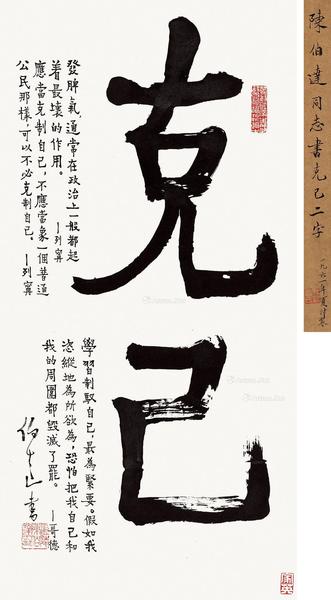 陳伯達同志書克己二字
克己
發脾氣，通常在政治上一般都起
着最壞的作用。 —列寧
應當克制自己，不應當象一個普通
公民那樣，可以不必克制自己。—列寧
學習制馭自己，最為緊要。假如我
恣縱地為所欲為，恐怕把我自己和
我的周圍都毀滅了罷。 —哥德
山書